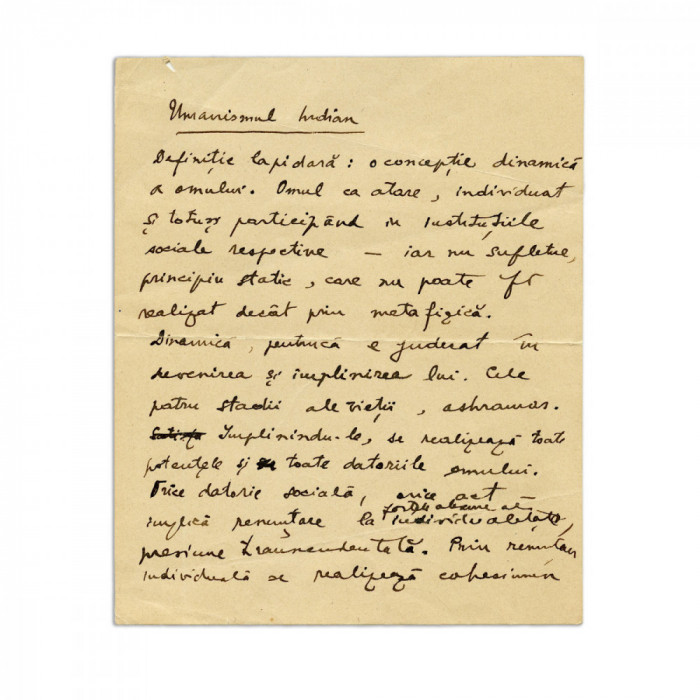 Umanismul Indian
Definiție lapidară: o concepție dinamică
a omului. Omul ca atare, individuat
și totuși participând in instituțiile
sociale respective — iar nu sufletul,
principiu static, care nu poate fi
realizat decât prin metafizică.
Dinamică, pentrucă e judecat în
devenirea și implinirea lui. Cele
patru stadii ale vieții, ashramas.
Implinindu-le, se realizează toate
potențele și toate datoriile omului.
Orice datorie socială, orice act
implică renunțare la individualitate,
presiune transcendentală. Prin renunțare
individuală se realizează coheziunea